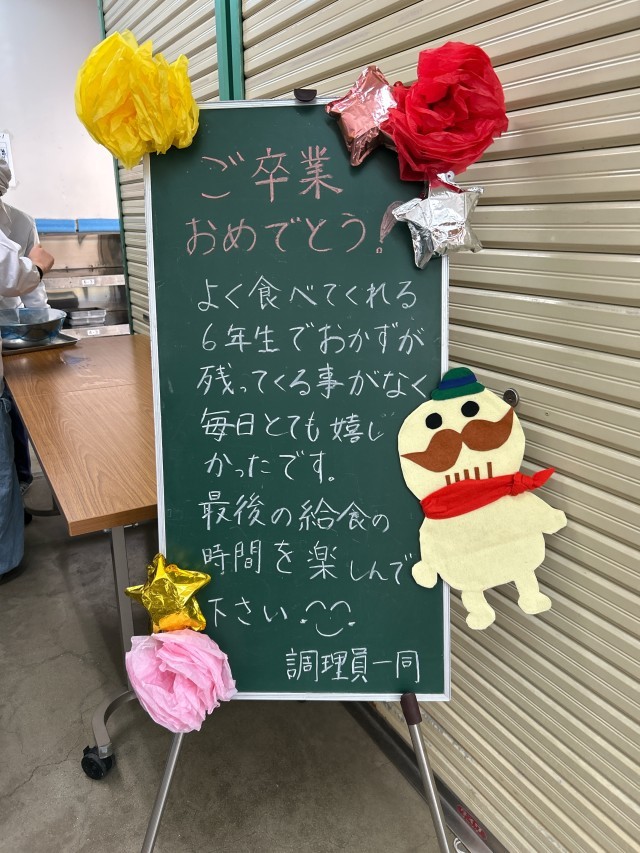 ご卒業
おめでとう!
よく食べてくれる
6年生でおかずが
残ってくる事がなく
毎日とても嬉し
かったです。
最後の給食の
時間を楽しんで
下さい
調理員一同